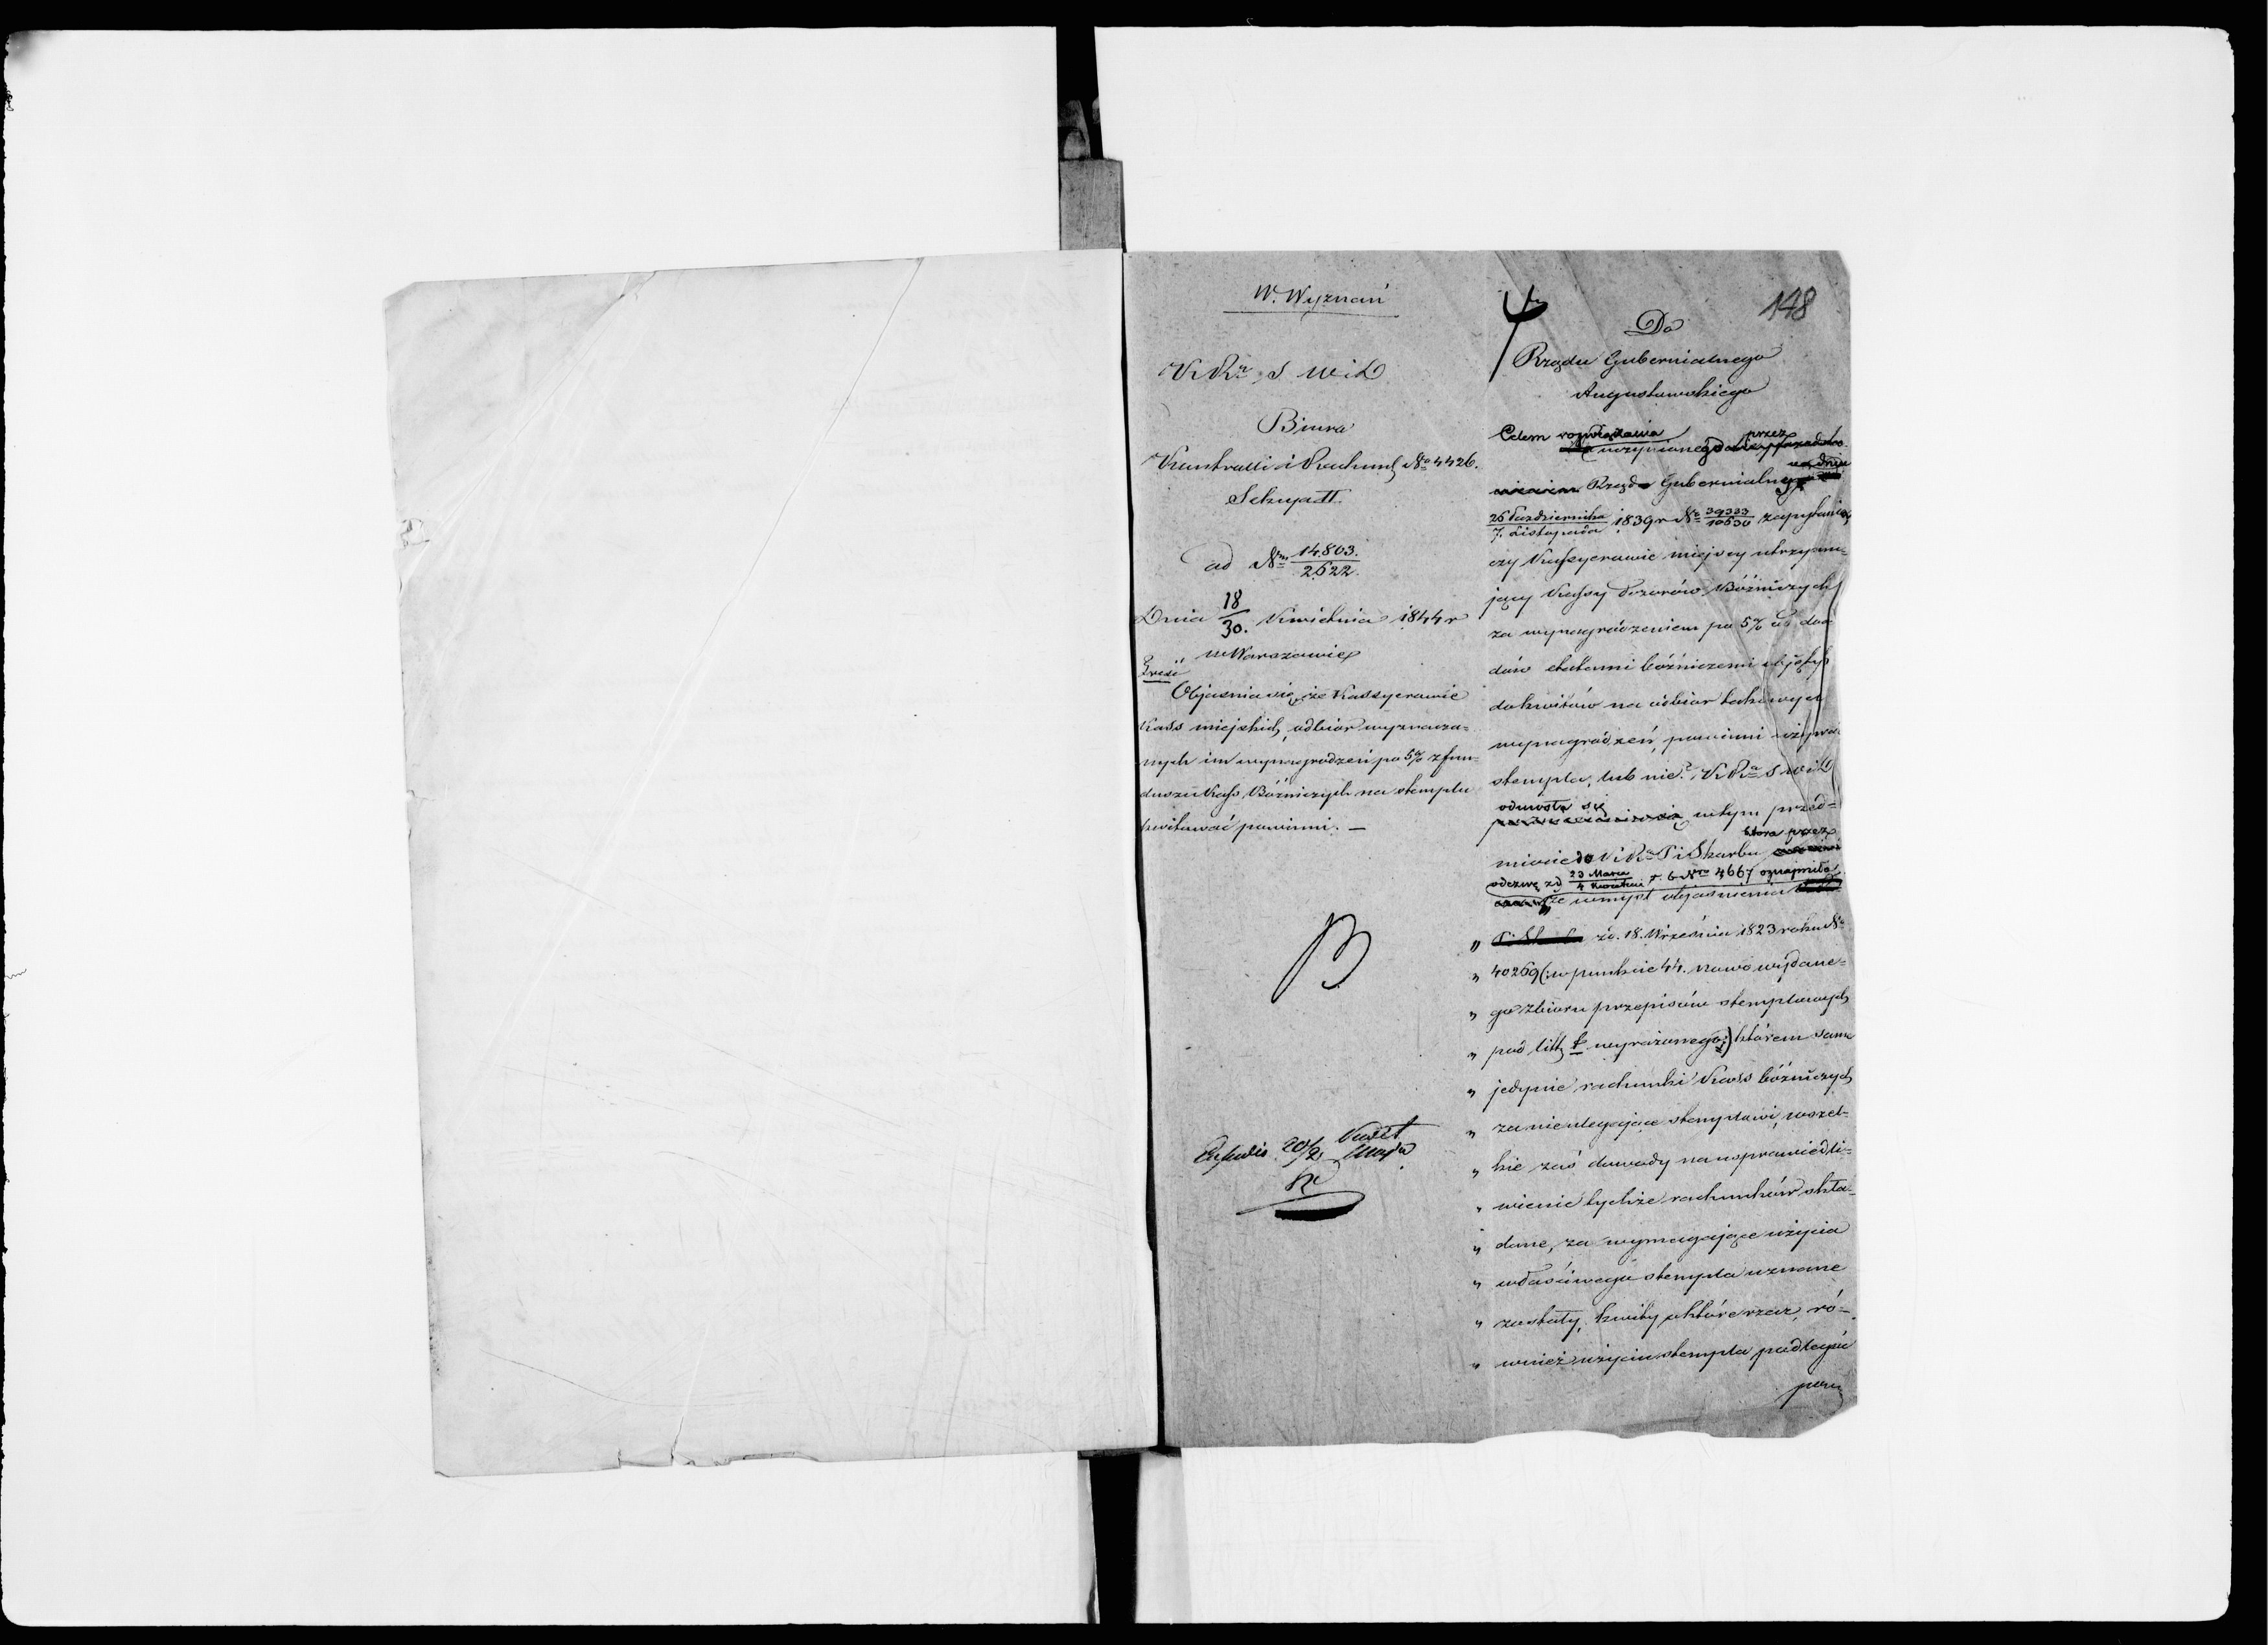 W. Wyznań
K. Ra. S. W. i D.
Biura
Kontrolli i Rachunk. No 4426.
Sekcya II.
ad Nrm 14.803./2622.
Dnia 18/30. Kwietnia 1844 r
w Warszawie
Treść
Objaśnia się, że Kassyerowie
Kass miejskich, odbiór wyznacza=
nych im wynagrodzeń po 5% z fun=
duszu Kass Bóżniczych na stemplu
kwitować powinni. —
20/2 Maja
148
Do
Rządu Gubernialnego
Augustowskiego
Celem rozwiązania uczynionego przez
Rząd Gubernialny na dniu
26 Października/7. Listopada 1839 r No 39333/10630 zapytania
czy Kassyerowie miejscy utrzymu=
jący Kassy Dozorów Bóżniczych
za wynagrodzeniem po 5% od docho
dów etatami bóżniczemi objętych
do kwitów na odbiór takowych
wynagrodzeń, powinni używać
stempla, lub nie? K. Ra. S. W. i D.
odniosła się w tym przed=
miocie do K. Ra. P. i Skarbu która przez
odezwę z d 23 Marca/4 Kwietnia r. b. Nro 4667 oznajmiła
że w myśl objaśnienia
„ zd. 18. Września 1823 roku No
„ 40269 (: w punkcie 44. nowo wydane=
„ go zbioru przepisów stemplowych
„ pod litt. f wyrażonego :) którem same
„ jedynie rachunki Kass bóżniczych
„ za nieulegające stemplowi, wszel=
„ kie zaś dowody na usprawiedli=
„ wienie tychże rachunków skła=
„ dane, za wymagające użycia
„ właściwego stempla uznane
„ zostały, kwity o które rzecz, ró=
„ wnież użyciu stempla podlegać
powin